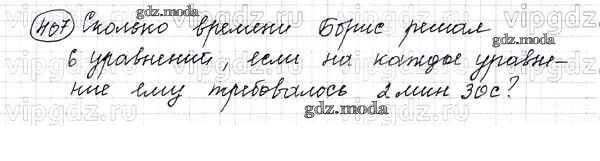 407 Сколько времени Борис решал
6 уравнений, если на каждое уравне-
ние ему требовалось 2 мин 30 с?
vipgdz.ru
gdz.moda